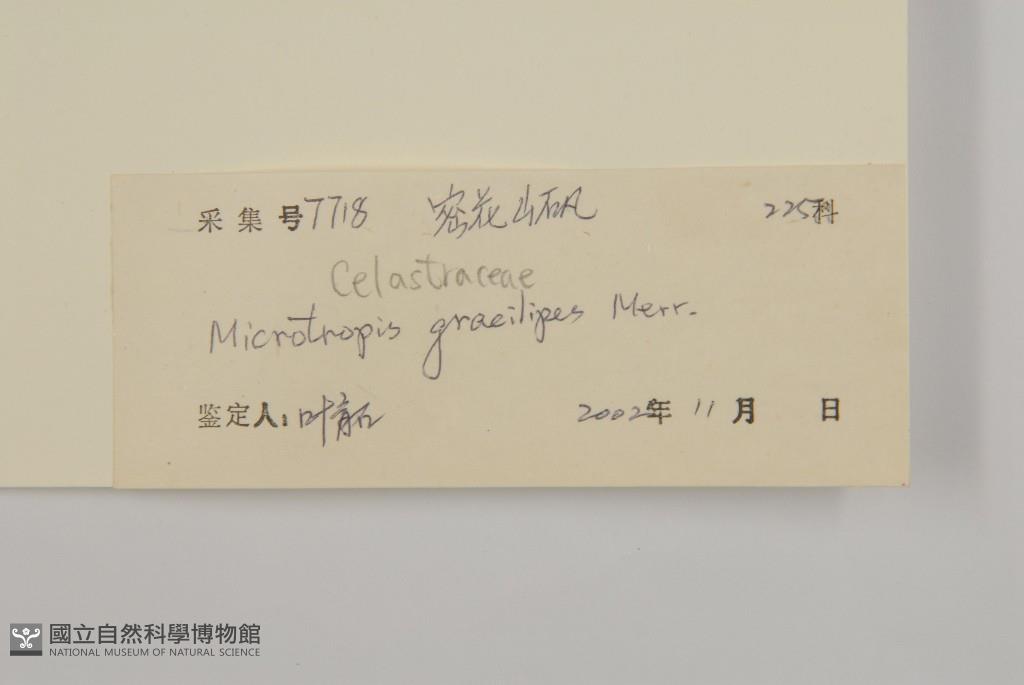 采集号7718 密花山矾 225科
Celastraceae
Microtropis gracilipes Merr.
鉴定人:叶育石 2002年 11月 日
國立自然科學博物館
NATIONAL MUSEUM OF NATURAL SCIENCE